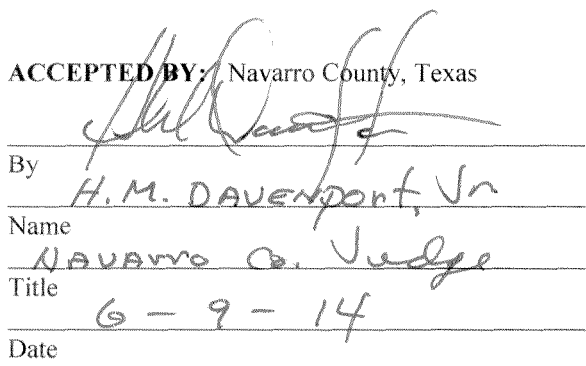 ACCEPTED BY: Navarro County, Texas
By
H.M. DAVENPORT, Jr
Name
NAVARRO Co. Judge
Title
6 - 9 - 14
Date